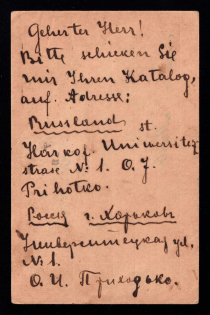 Geherter Herr!
Bitte schicken Sie
mir Ihren Katalog,
auf. Adresse:
Russland st.
Harkof. Universitez
strase № 1. O. J.
Prihotko.
Россия г. Харьковъ
Университецкая ул.
№ 1.
О. И. Приходько.